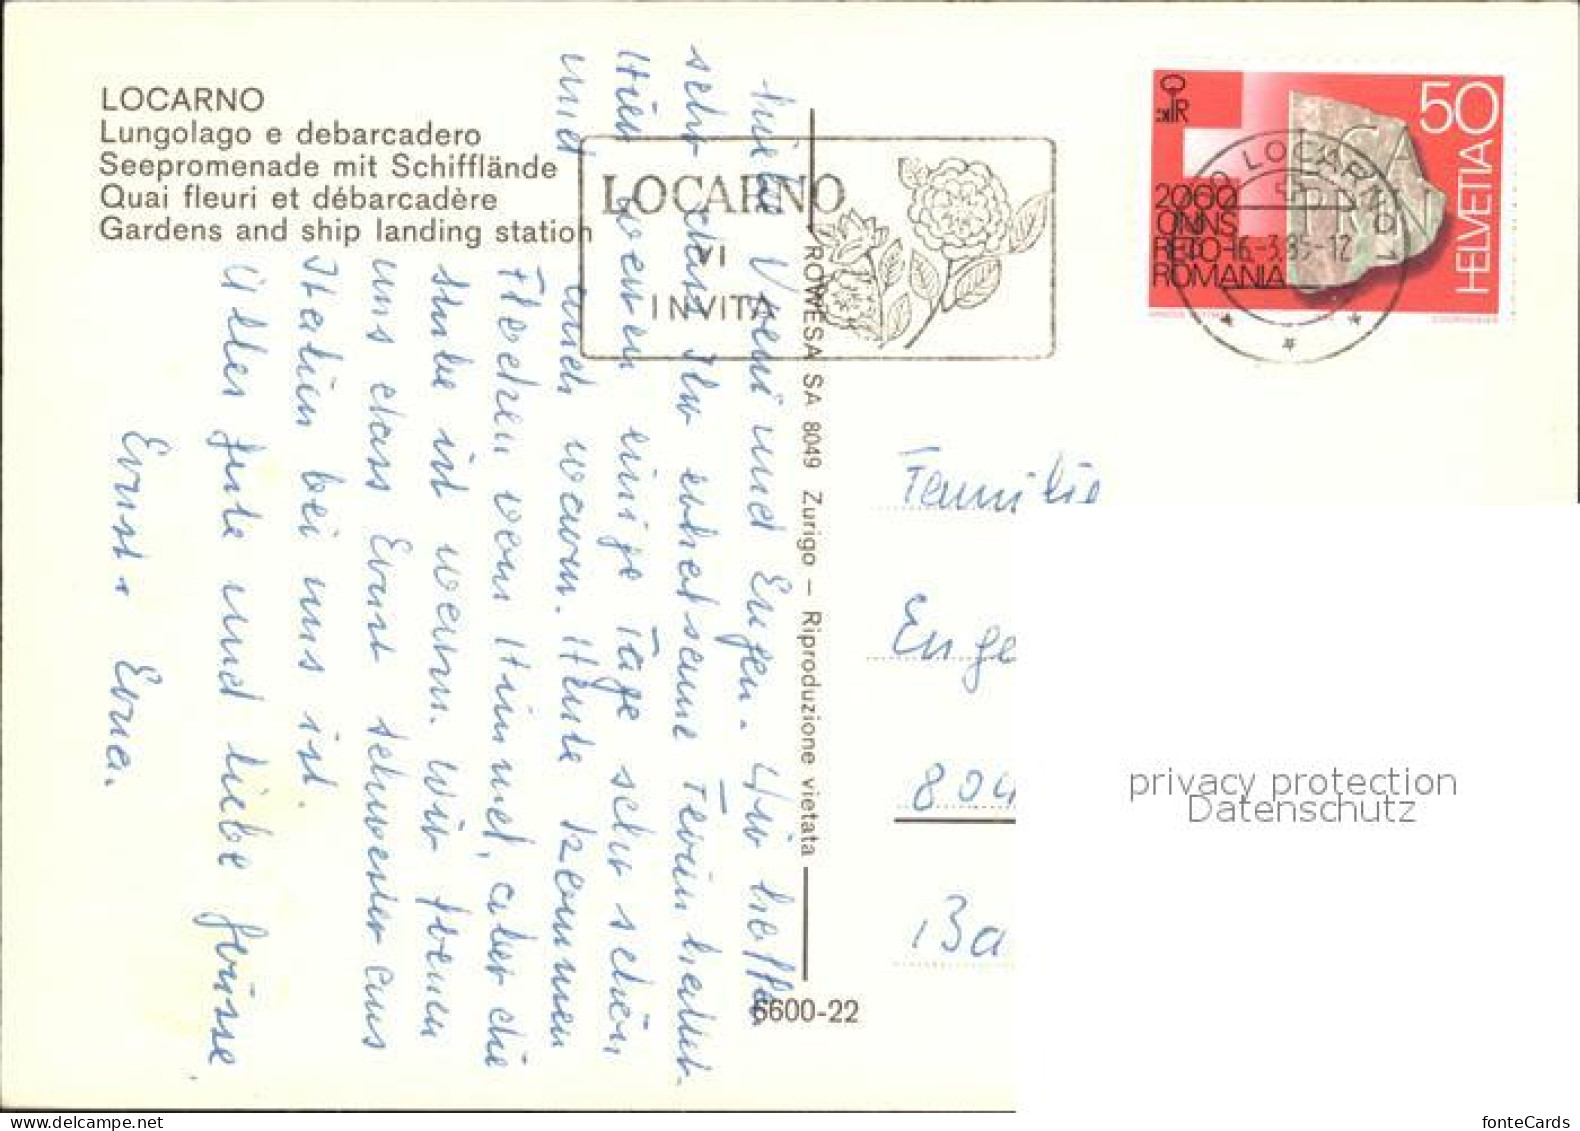 LOCARNO
Lungolago e debarcadero
Seepromenade mit Schifflände
Quai fleuri et débarcadère
Gardens and ship landing station
LOCARNO
VI
INVITA
50
HELVETIA
2000
ONNS
RETO-
ROMANIA
LOCARNO 1
-6.-3.85-12
ROWESA SA 8049 Zurigo – Riproduzione vietata
6600-22
Vreni und Eugen. Wir hoffen
sehr dass Ihr erholsame Ferien hattet.
Hier waren einige Tage sehr schön
und auch warm. Heute kommen
Flocken vom Himmel, aber die
Stube ist warm. Wir freuen
uns dass Ernst Schwester aus
Italien bei uns ist.
Alles Gute und liebe Grüsse
Ernst + Erna.
Familie
Euge
804
Ba
privacy protection
Datenschutz
fonteCards